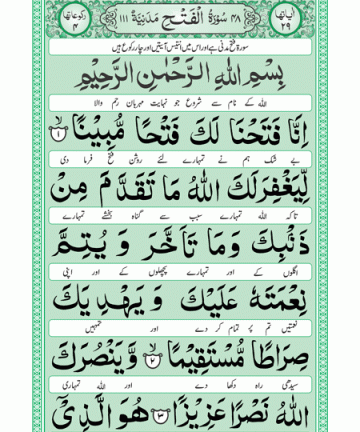 اٰیاتھا ٢٩ ٤٨ سُوْرَةُ الْفَتْحِ مَدَنِيَّةٌ ١١١ رکوعاتھا ٤
سورۃ فتح مدنی ہے اور اس میں انتیس آیتیں اور چار رکوع ہیں
بِسْمِ اللهِ الرَّحْمٰنِ الرَّحِيْمِ
اللہ کے نام سے شروع جو نہایت مہربان رحم والا
اِنَّا فَتَحْنَا لَكَ فَتْحًا مُّبِيْنًا ۙ﴿١﴾
بے شک ہم نے تمہارے لئے روشن فتح فرما دی
لِّيَغْفِرَ لَكَ اللهُ مَا تَقَدَّمَ مِنْ
تاکہ اللہ تمہارے سبب سے گناہ بخشے تمہارے
ذَنْۢبِكَ وَمَا تَاَخَّرَ وَ يُتِمَّ
اگلوں کے اور تمہارے پچھلوں کے اور اپنی
نِعْمَتَهٗ عَلَيْكَ وَ يَهْدِيَكَ
نعمتیں تم پر تمام کر دے اور تمہیں
صِرَاطًا مُّسْتَقِيْمًا ۙ﴿٢﴾ وَّ يَنْصُرَكَ
سیدھی راہ دکھا دے اور اللہ تمہاری
اللهُ نَصْرًا عَزِيْزًا ﴿٣﴾ هُوَ الَّذِيْۤ